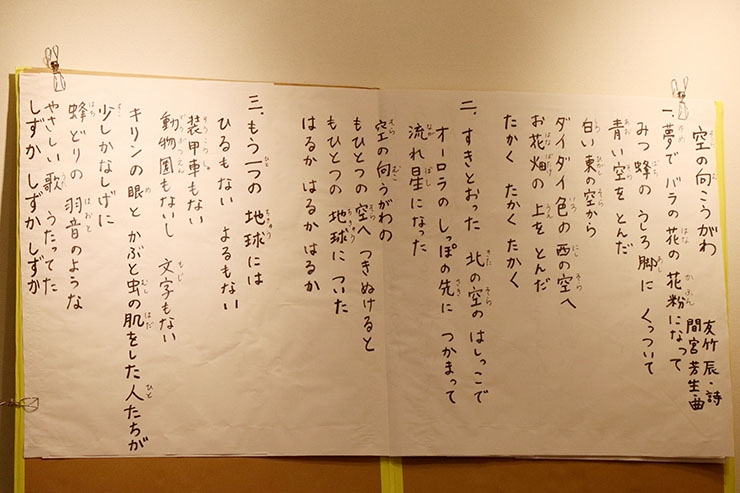 空の向こうがわ
友竹 辰・詩
間宮芳生・曲
一、夢で バラの 花の 花粉になって
みつ蜂の うしろ脚に くっついて
青い空を とんだ
白い東の空から
ダイダイ色の 西の空へ
お花畑の 上を とんだ
たかく たかく たかく
二、すきとおった 北の空の はしっこで
オーロラの しっぽの先に つかまって
流れ星に なった
空の向うがわの
もひとつの 空へ つきぬけると
もひとつの 地球に ついた
はるか はるか はるか
三、もう一つの 地球には
ひるもない よるもない
装甲車もない
動物園もないし 文字もない
キリンの眼と かぶと虫の肌をした 人たちが
少しかなしげに
蜂どりの 羽音のような
やさしい 歌 うたってた
しずか しずか しずか